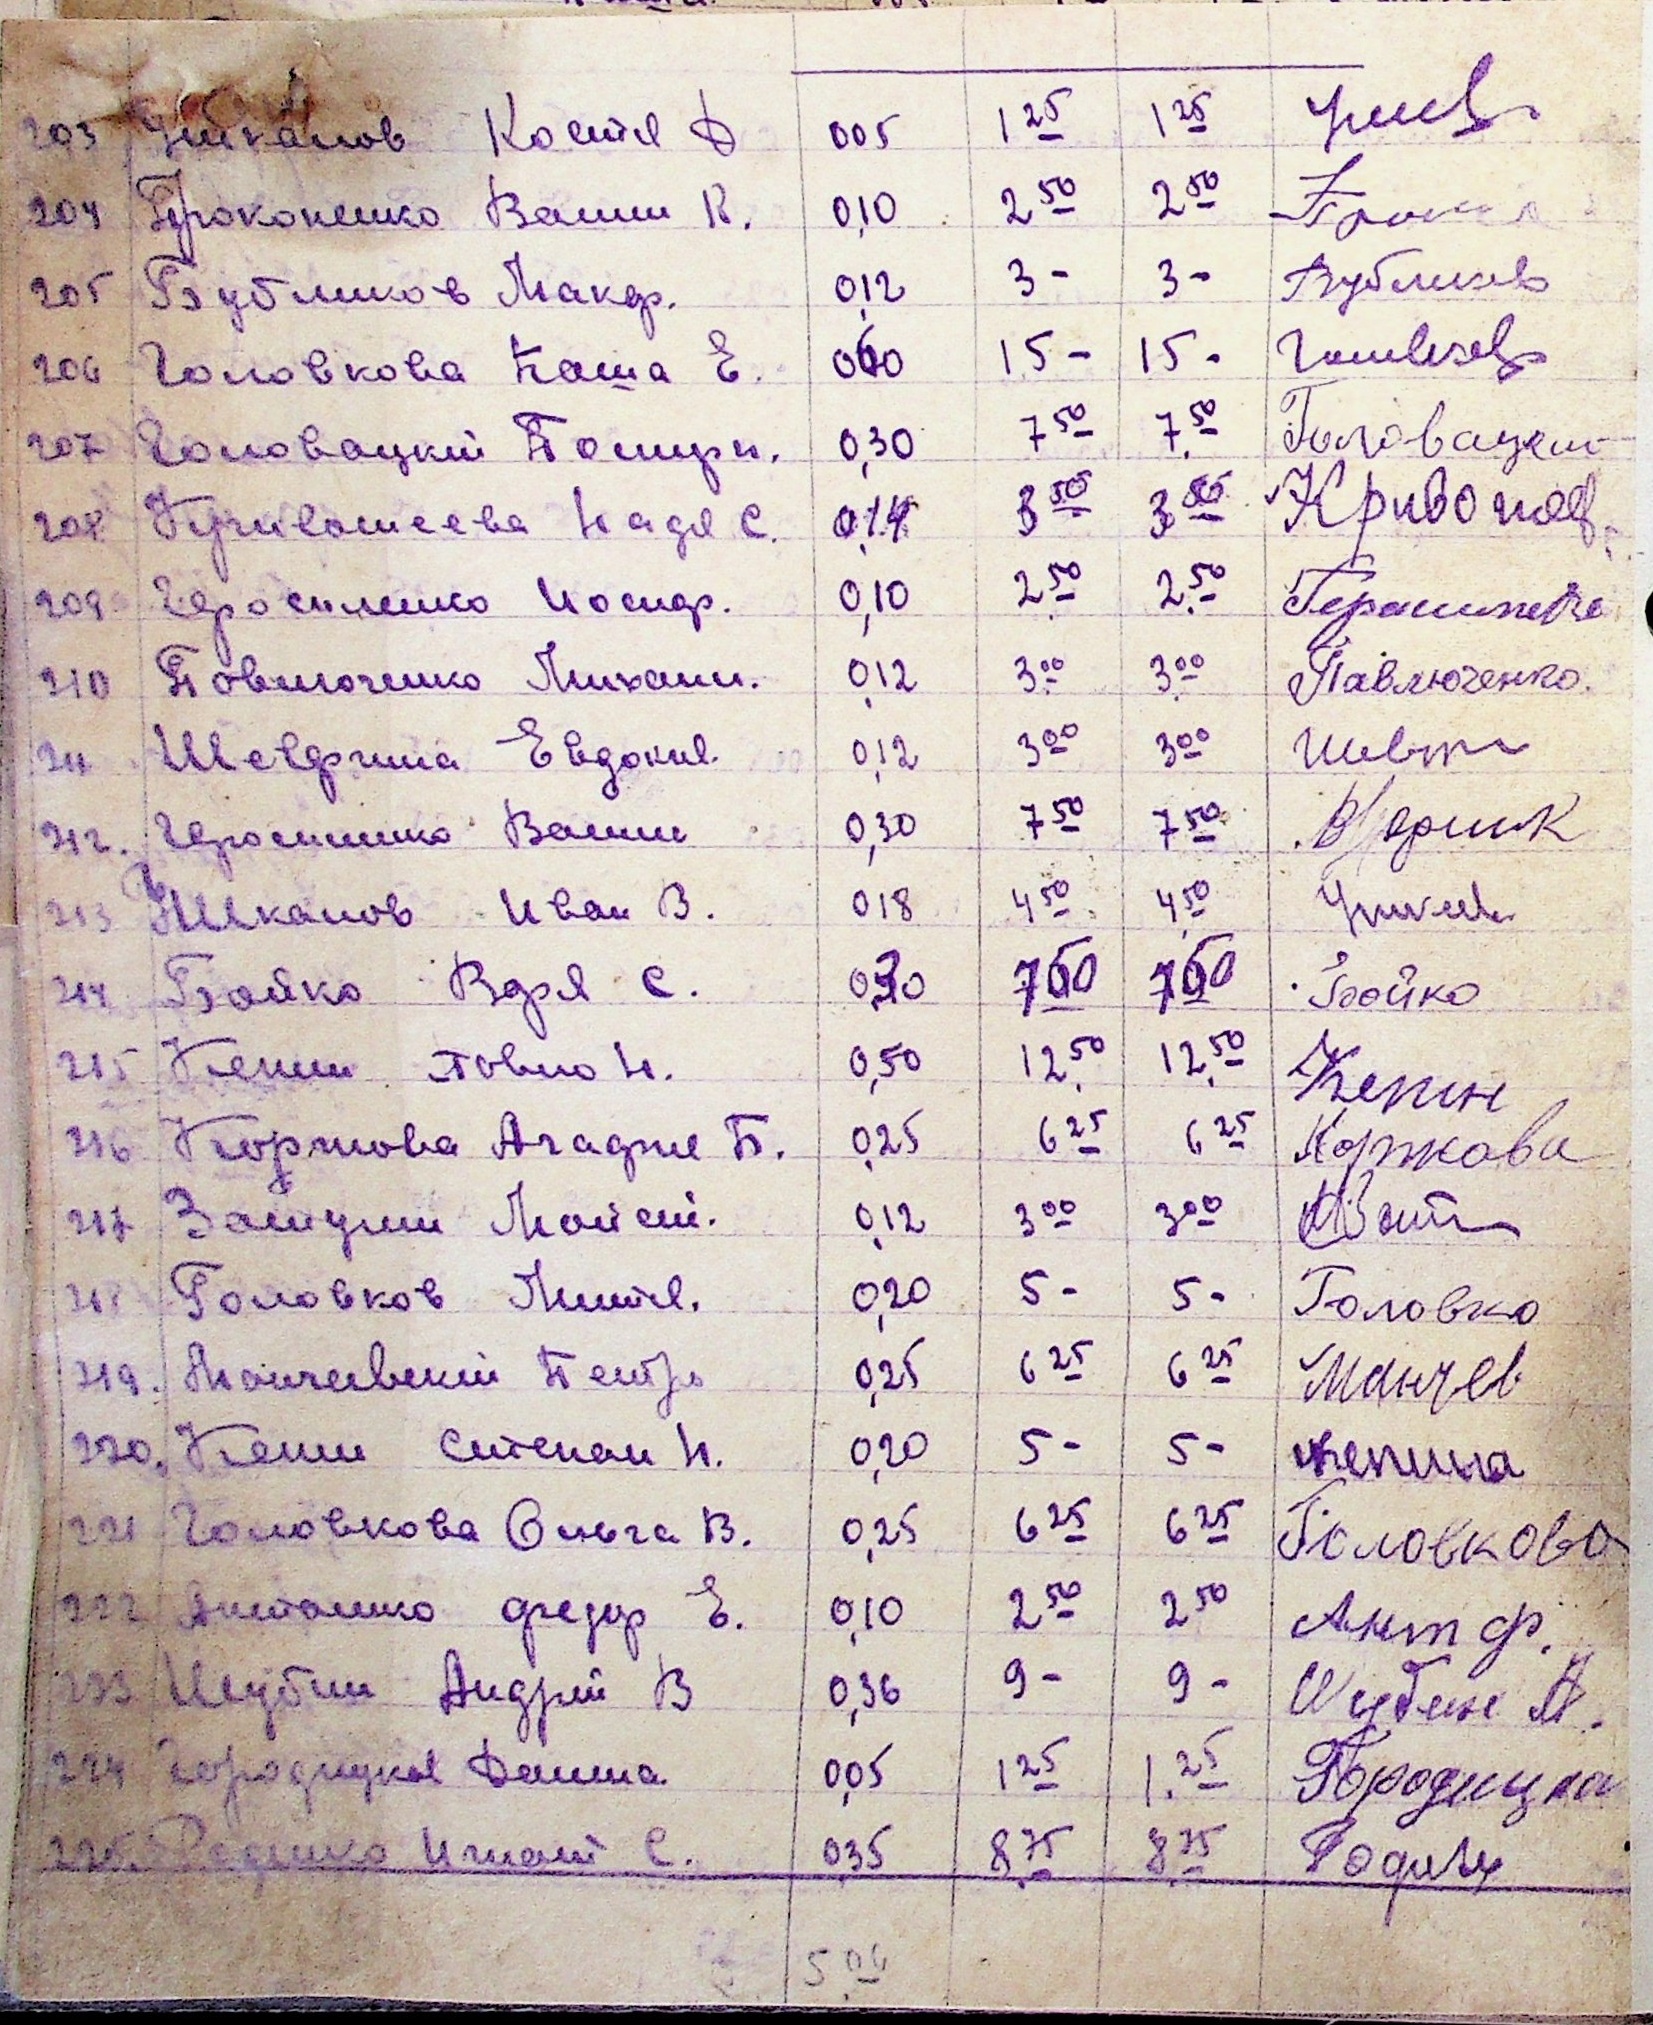 203 Чикалов Костя Д 0,05 1 25 1 25
204 Прокопенко Васили К. 0,10 2 50 2 50
205 Бубликов Макар. 0,12 3 - 3 - Бубликов
206 Головкова Каша Е. 0,60 15 - 15 -
207 Головацкий 0,30 7 50 7 50 Головацки
208 Кривошеева Надя С. 0,14 3 50 3 50 Кривошеев
209 Герасименко Иосиф. 0,10 2 50 2 50 Герасименко
210 Повлюченко Михаил. 0,12 3 00 3 00 Павлюченко.
211 Евдокия. 0,12 3 00 3 00
212. Герасименко Васили 0,30 7 50 7 50
213 Иван В. 0,18 4 50 4 50
214 Бойко С. 0,30 7 50 7 50 Бойко
215 Кепин Повло Н. 0,50 12,50 12,50 Кепин
216 Коржова Агафия Б. 0,25 6 25 6 25 Коржова
217 Мойсей. 0,12 3 00 3 00
218 Головков Митя. 0,20 5 - 5 - Головко
219. Манчевский Петр 0,25 6 25 6 25 Манчев
220. Кепин Степан Н. 0,20 5 - 5 - Кепина
221 Головкова Ольга В. 0,25 6 25 6 25 Головкова
222 Антонико Федор Е. 0,10 2 50 2 50 Ант Ф.
223 Шубин Андрий В 0,36 9 - 9 - Шубин А.
224 Городицкая 0,05 1 25 1. 25 Городицка
225. Игнат С. 0,35 8 75 8 75
5 06